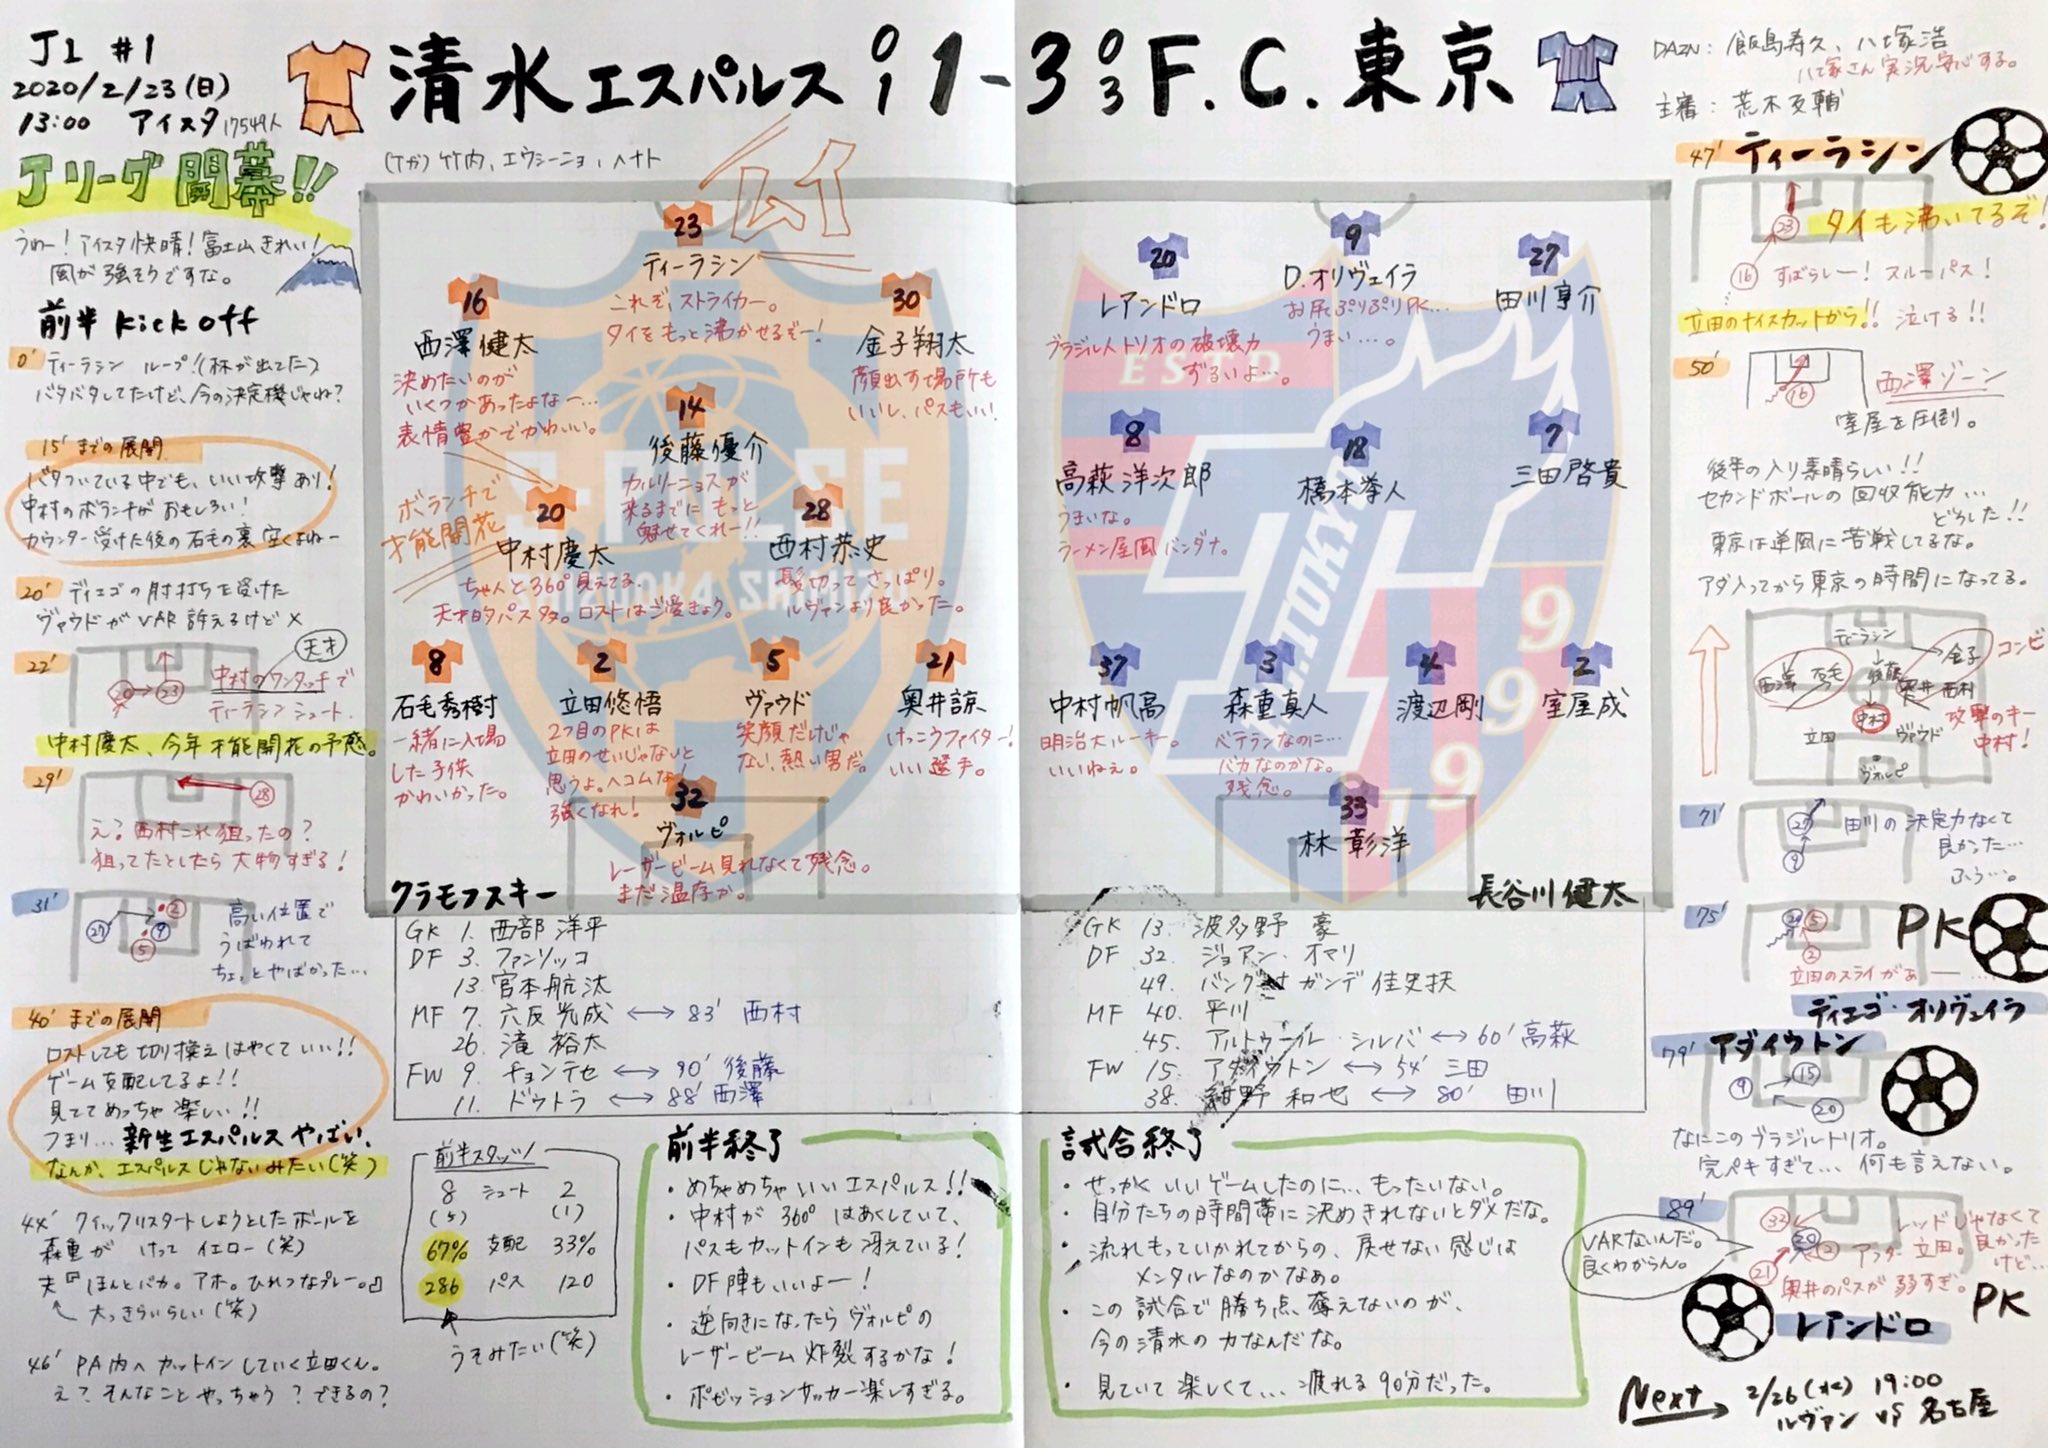 J1 #1
2020/2/23(日)
13:00 アイスタ 17549人
Jリーグ開幕!!
清水エスパルス 0 1 1-3 0 3 F.C.東京
DAZN: 飯島寿久、八塚浩
八塚さん実況安心する。
主審: 荒木友輔
(ケガ) 竹内、エウシーニョ、ヘナト
うわー!アイスタ快晴!富士山きれい!
風が強そうですな。
前半 kick off
0' ティーラシン ループ!(林が出てた)
バタバタしてたけど、今の決定機じゃね?
15'までの展開
バタついている中でも、いい攻撃あり!
中村のボランチがおもしろい!
カウンター受けた後の石毛の裏空くよねー
20' ディエゴの肘打ちを受けた
ヴァウドがVAR訴えるけど×
22'
天才
20 23
中村のワンタッチで
ティーラシンシュート.
中村慶太、今年才能開花の予感。
29'
28
え?西村これ狙ったの?
狙ってたとしたら大物すぎる!
31'
27 2 9 5
高い位置で
うばわれて
ちょっとやばかった…
40'までの展開
ロストしても切り換えはやくていい!!
ゲーム支配してるよ!!
見ててめっちゃ楽しい!!
つまり…新生エスパルスやばい、
なんか、エスパルスじゃないみたい(笑)
44' クイックリスタートしようとしたボールを
森重がけってイエロー(笑)
夫『ほんとバカ。アホ。ひれつなプレー。』
大っきらいらしい(笑)
46' PA内へカットインしていく立田くん。
え?そんなことやっちゃう?できるの?
23
ティーラシン
これぞ、ストライカー。
タイをもっと沸かせるぞー!
16
西澤健太
決めたいのが
いくつかあったよなー…
表情豊かでかわいい。
30
金子翔太
顔出す場所も
いいし、パスもいい!
14
後藤優介
カルリーニョスが
来るまでにもっと
魅せてくれー!!
ボランチで
才能開花
20
中村慶太
ちゃんと360°見えてる。
天才的パスタタ。ロストはご愛きょう。
28
西村恭史
髪切ってさっぱり。
ルヴァンより良かった。
8
石毛秀樹
一緒に入場
した子供
かわいかった。
2
立田悠悟
2つ目のPKは
立田のせいじゃないと
思うよ。ヘコむな!
強くなれ!
5
ヴァウド
笑顔だけじゃ
ない、熱い男だ。
21
奥井諒
けっこうファイター!
いい選手。
32
ヴォルピ
レーザービーム見れなくて残念。
まだ温存か。
クラモフスキー
S-PULSE
SHIZUOKA SHIMIZU
20
レアンドロ
ブラジル人トリオの破壊力
ずるいよ…。
9
D.オリヴェイラ
お尻ぷりぷりPK…
うまい…。
27
田川亨介
8
高萩洋次郎
うまいな。
ラーメン屋風バンダナ。
18
橋本拳人
7
三田啓貴
37
中村帆高
明治大ルーキー。
いいねぇ。
3
森重真人
ベテランなのに…
バカなのかな。
残念。
4
渡辺剛
2
室屋成
33
林彰洋
長谷川健太
ESTD
F.C.TOKYO
1999
GK 1. 西部洋平
DF 3. ファンソッコ
13. 宮本航汰
MF 7. 六反光成 ↔ 83' 西村
26. 滝裕太
FW 9. チョンテセ ↔ 90' 後藤
11. ドウトラ ↔ 88' 西澤
GK 13. 波多野豪
DF 32. ジョアン・オマリ
49. バングーナガンデ佳史扶
MF 40. 平川
45. アルトゥール・シルバ ↔ 60' 高萩
FW 15. アダイウトン ↔ 54' 三田
38. 紺野和也 ↔ 80' 田川
前半スタッツ
8 シュート 2
(5) (1)
67% 支配 33%
286 パス 120
うそみたい(笑)
前半終了
・めちゃめちゃいいエスパルス!!
・中村が360°はあくしていて、
パスもカットインも冴えている!
・DF陣もいいよー!
・逆向きになったらヴォルピの
レーザービーム炸裂するかな!
・ポゼッションサッカー楽しすぎる。
試合終了
・せっかくいいゲームしたのに…もったいない。
・自分たちの時間帯に決めきれないとダメだな。
・流れもっていかれてからの、戻せない感じは
メンタルなのかなぁ。
・この試合で勝ち点奪えないのが、
今の清水の力なんだな。
・見ていて楽しくて…疲れる90分だった。
47' ティーラシン
23
16
タイも沸いてるぞ!
すばらしー!スルーパス!
立田のナイスカットから!!泣ける!!
50'
16
西澤ゾーン
室屋を圧倒。
後半の入り素晴らしい!!
セカンドボールの回収能力…
どうした!!
東京は逆風に苦戦してるな。
アダ入ってから東京の時間になってる。
ティーラシン
金子 コンビ
西澤 石毛 後藤 奥井 西村
中村
攻撃のキー
中村!
立田 ヴァウド
ヴォルピ
71'
27
9
田川の決定力なくて
良かった…
ふぅ…。
75'
5
2
PK
立田のスライがぁー…
ディエゴ・オリヴェイラ
79' アダイウトン
9 15
20
なにこのブラジルトリオ。
完ペキすぎて…何も言えない。
89'
VARないんだ。
良くわからん。
32
20
2
21
レッドじゃなくて
良かった
けど…
アンダー立田。
奥井のパスが弱すぎ。
PK
レアンドロ
Next → 2/26(水) 19:00
ルヴァン vs 名古屋